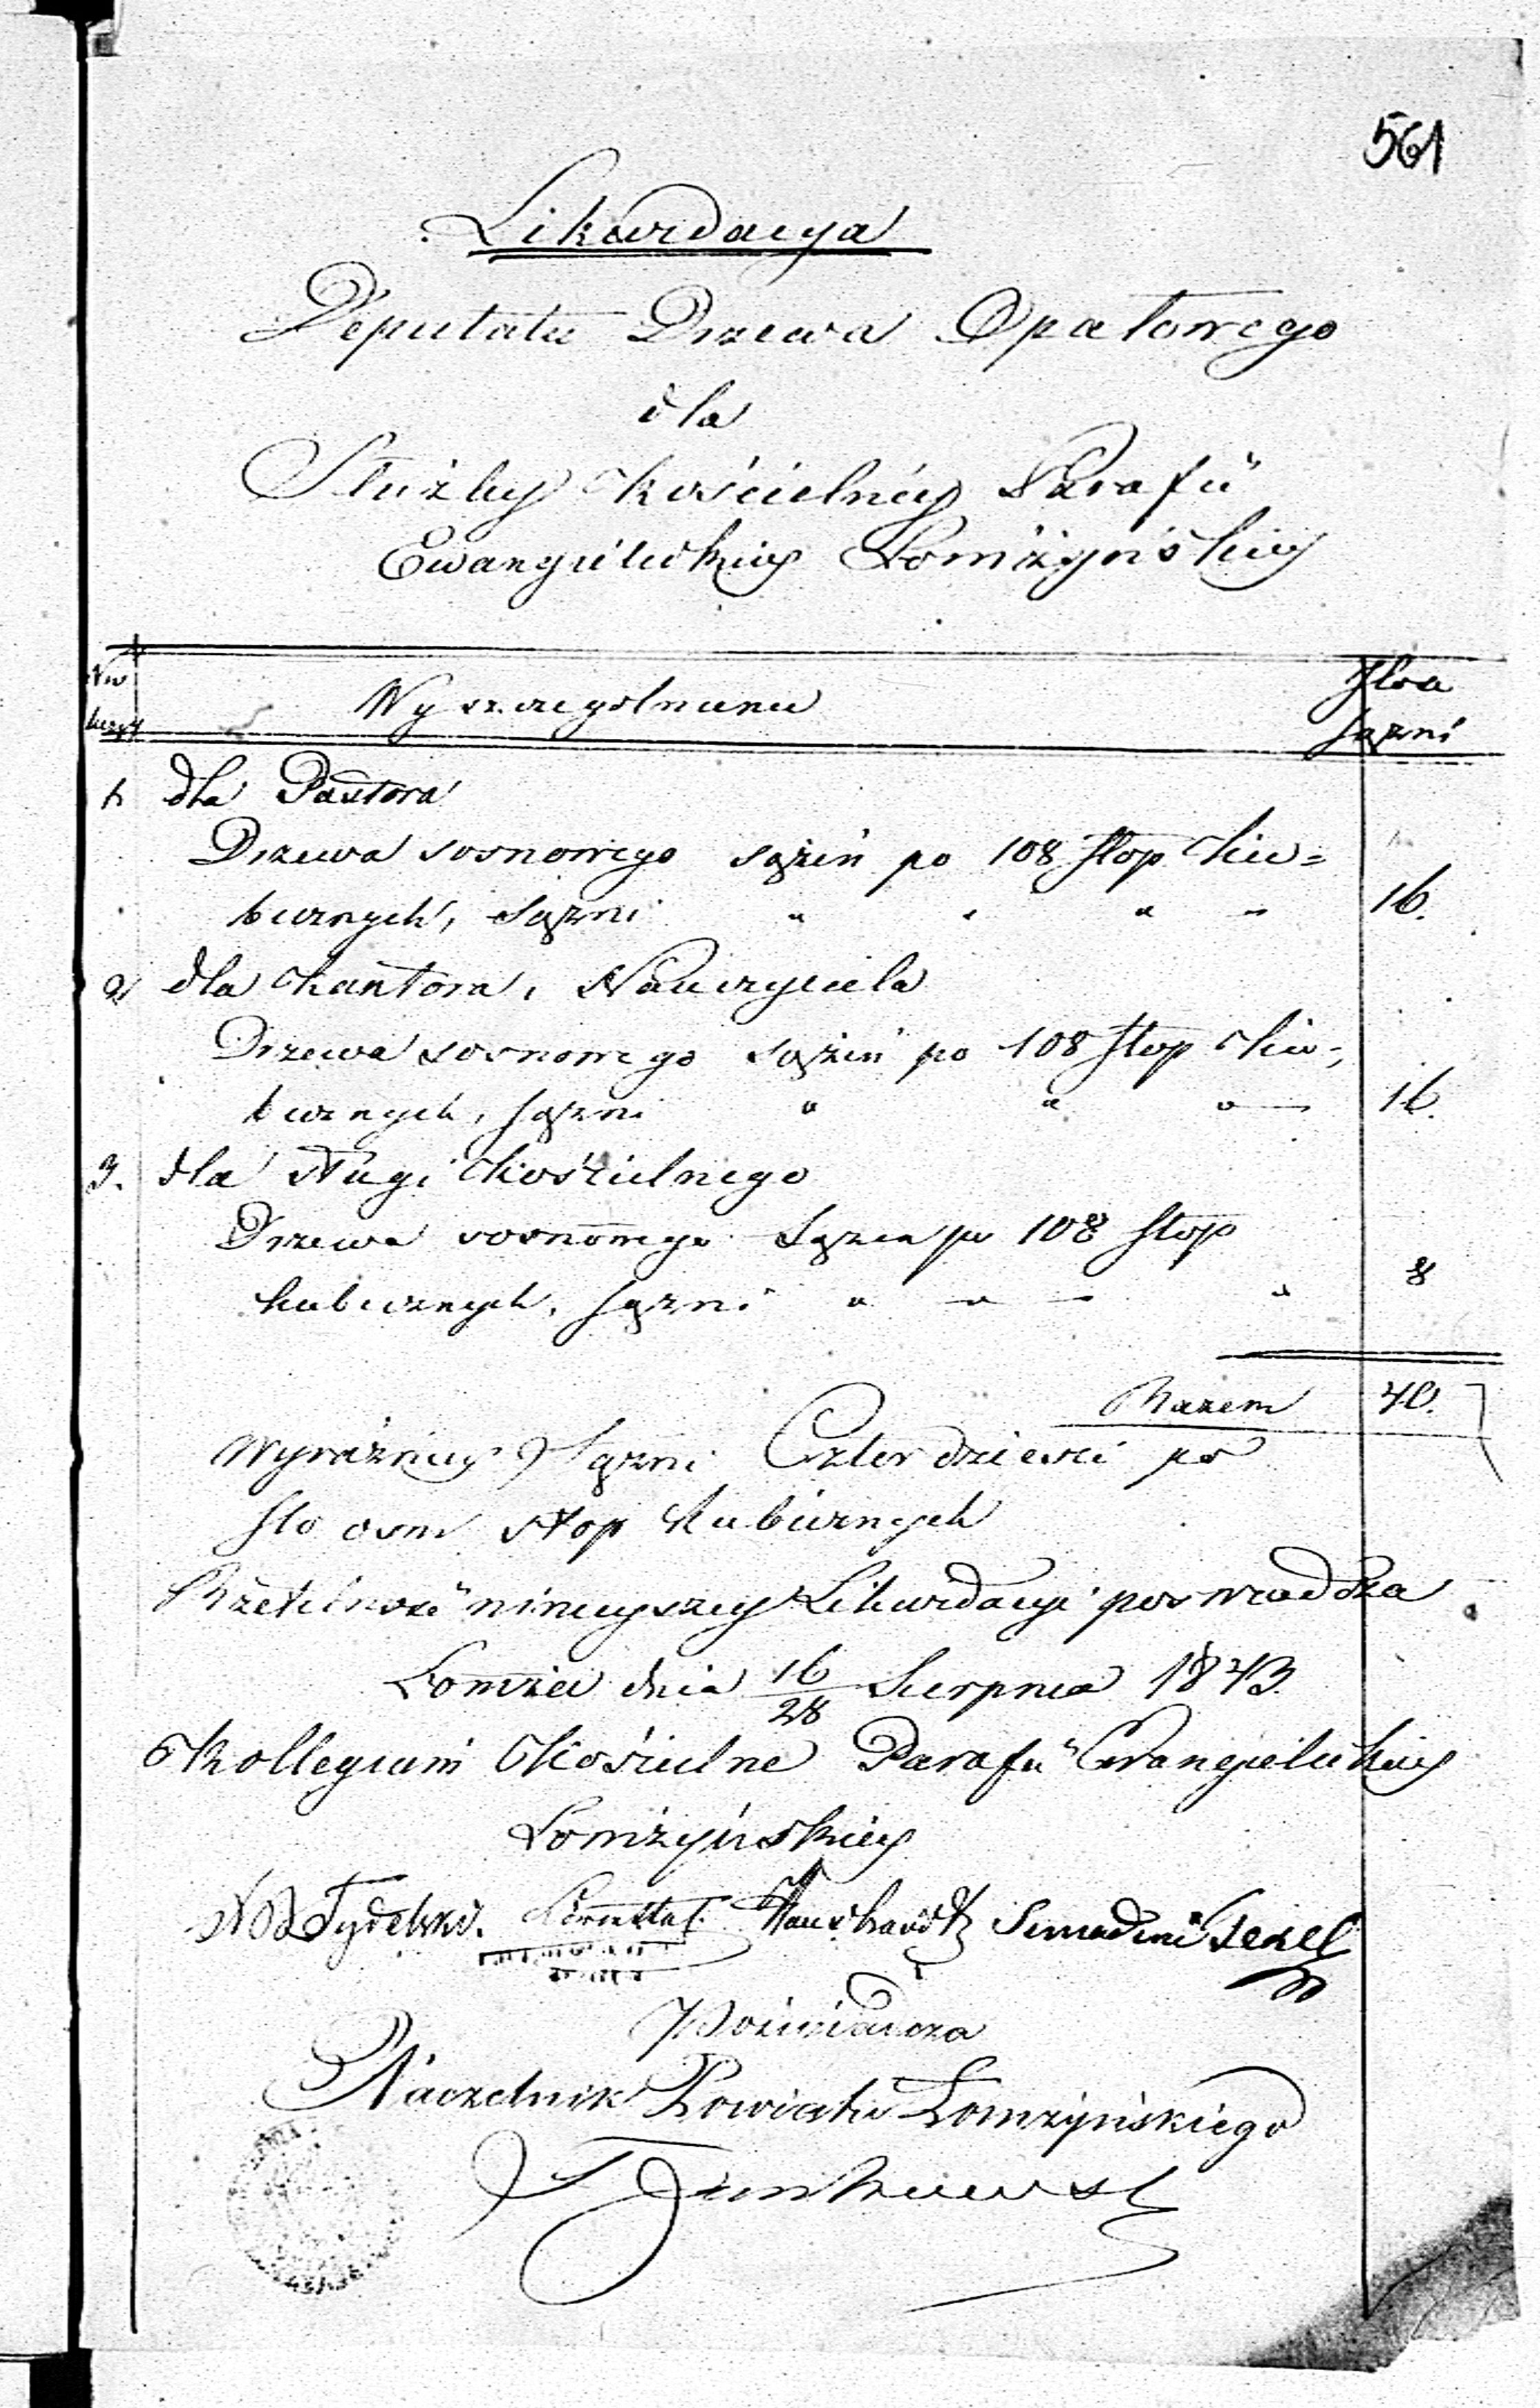 561
Likwidacya
Deputatu Drzewa Opałowego
dla
Służby Kościelnéy Parafii
Ewangielickiey Łomżyńskiey
Wyszczegolnienie
Sążni
1. dla Pastora
Drzewa sosnowego sążeń po 108 stop Ku=
bicznych, Sążni " " " - 16.
2. dla Kantora, Nauczyciela
Drzewa sosnowego sążeń po 108 stop Ku-
bicznych, sążni " " " - 16.
3. dla sługi Kościelnego
Drzewa sosnowego Sążeń po 108 stop
kubicznych, sążni " " - " 8
Razem 40.
Wyraźniey Sążni Czterdzieści po
sto osm stop Kubicznych
Rzetelność ninieyszey Likwidacyi poswiadcza
Łomża dnia 16/28 Sierpnia 1843.
Kollegium Kościelne Parafii Ewangielickiey
Łomżyńskiey
Semadeni
Poświadcza
Naczelnik Powiatu Łomżyńskiego